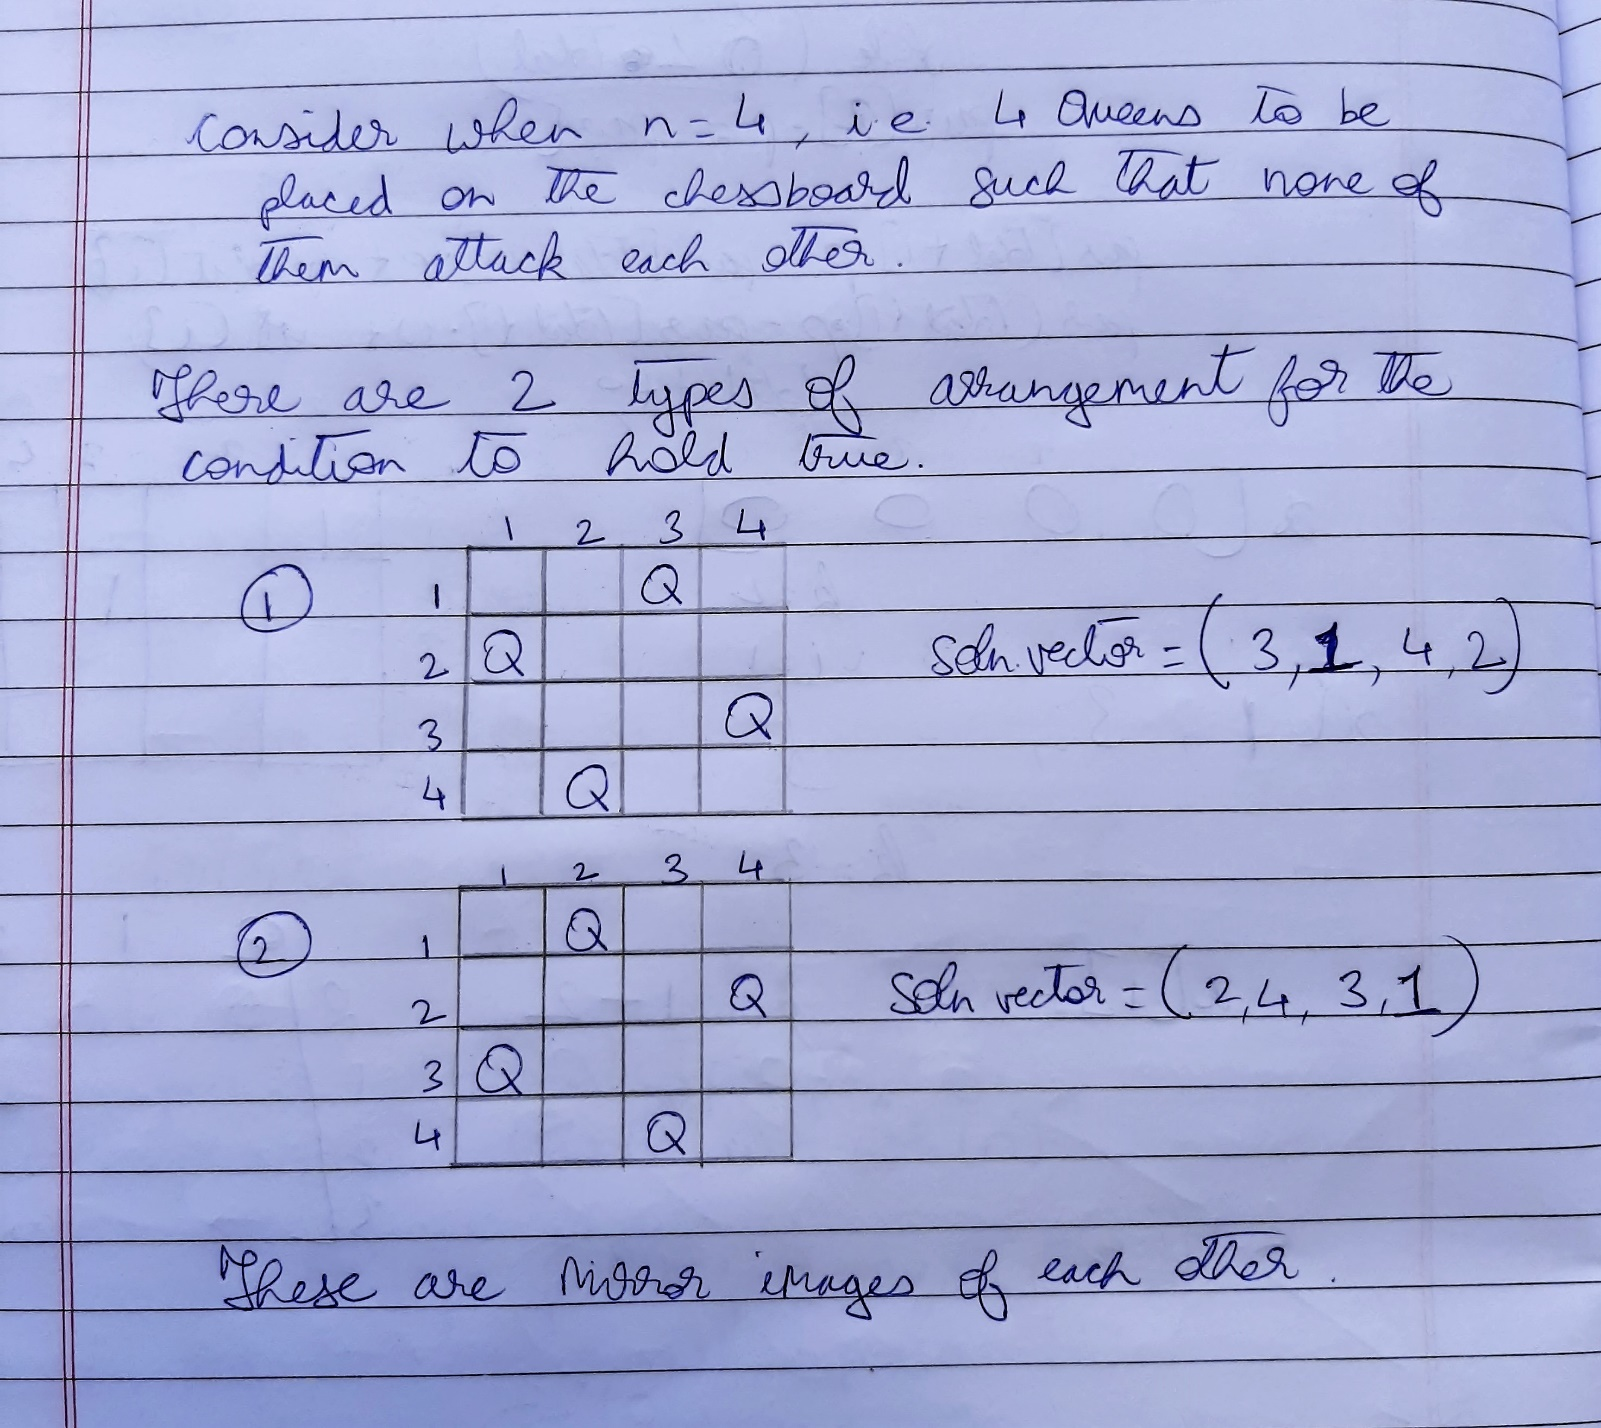 Consider when n=4, i.e. 4 Queens to be
placed on the chessboard such that none of
them attack each other.
There are 2 types of arrangement for the
condition to hold true.
1 2 3 4
① 1 Q
2 Q soln. vector = (3, 1, 4, 2)
3 Q
4 Q
1 2 3 4
② 1 Q
2 Q soln vector = (2, 4, 3, 1)
3 Q
4 Q
These are Mirror images of each other.